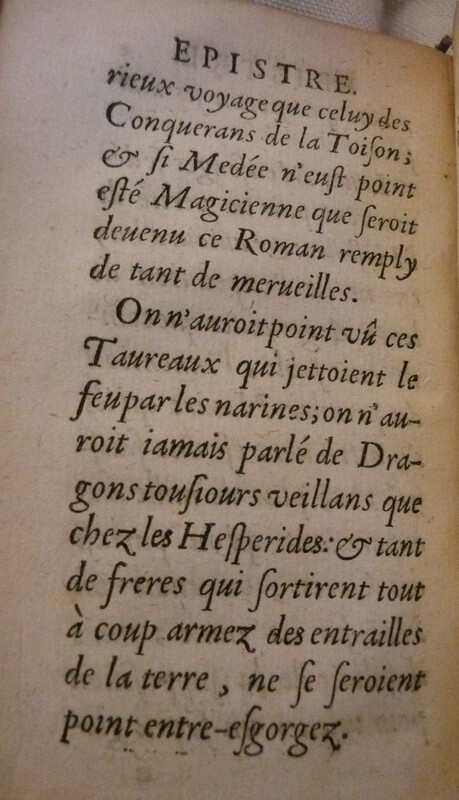 EPISTRE.
rieux voyage que celuy des
Conquerans de la Toiſon;
& ſi Medée n'euſt point
eſté Magicienne que ſeroit
deuenu ce Roman remply
de tant de merueilles.
On n'auroit point vû ces
Taureaux qui jettoient le
feu par les narines; on n'au-
roit iamais parlé de Dra-
gons touſiours veillans que
chez les Heſperides: & tant
de freres qui ſortirent tout
à coup armez des entrailles
de la terre, ne ſe ſeroient
point entre-eſgorgez.